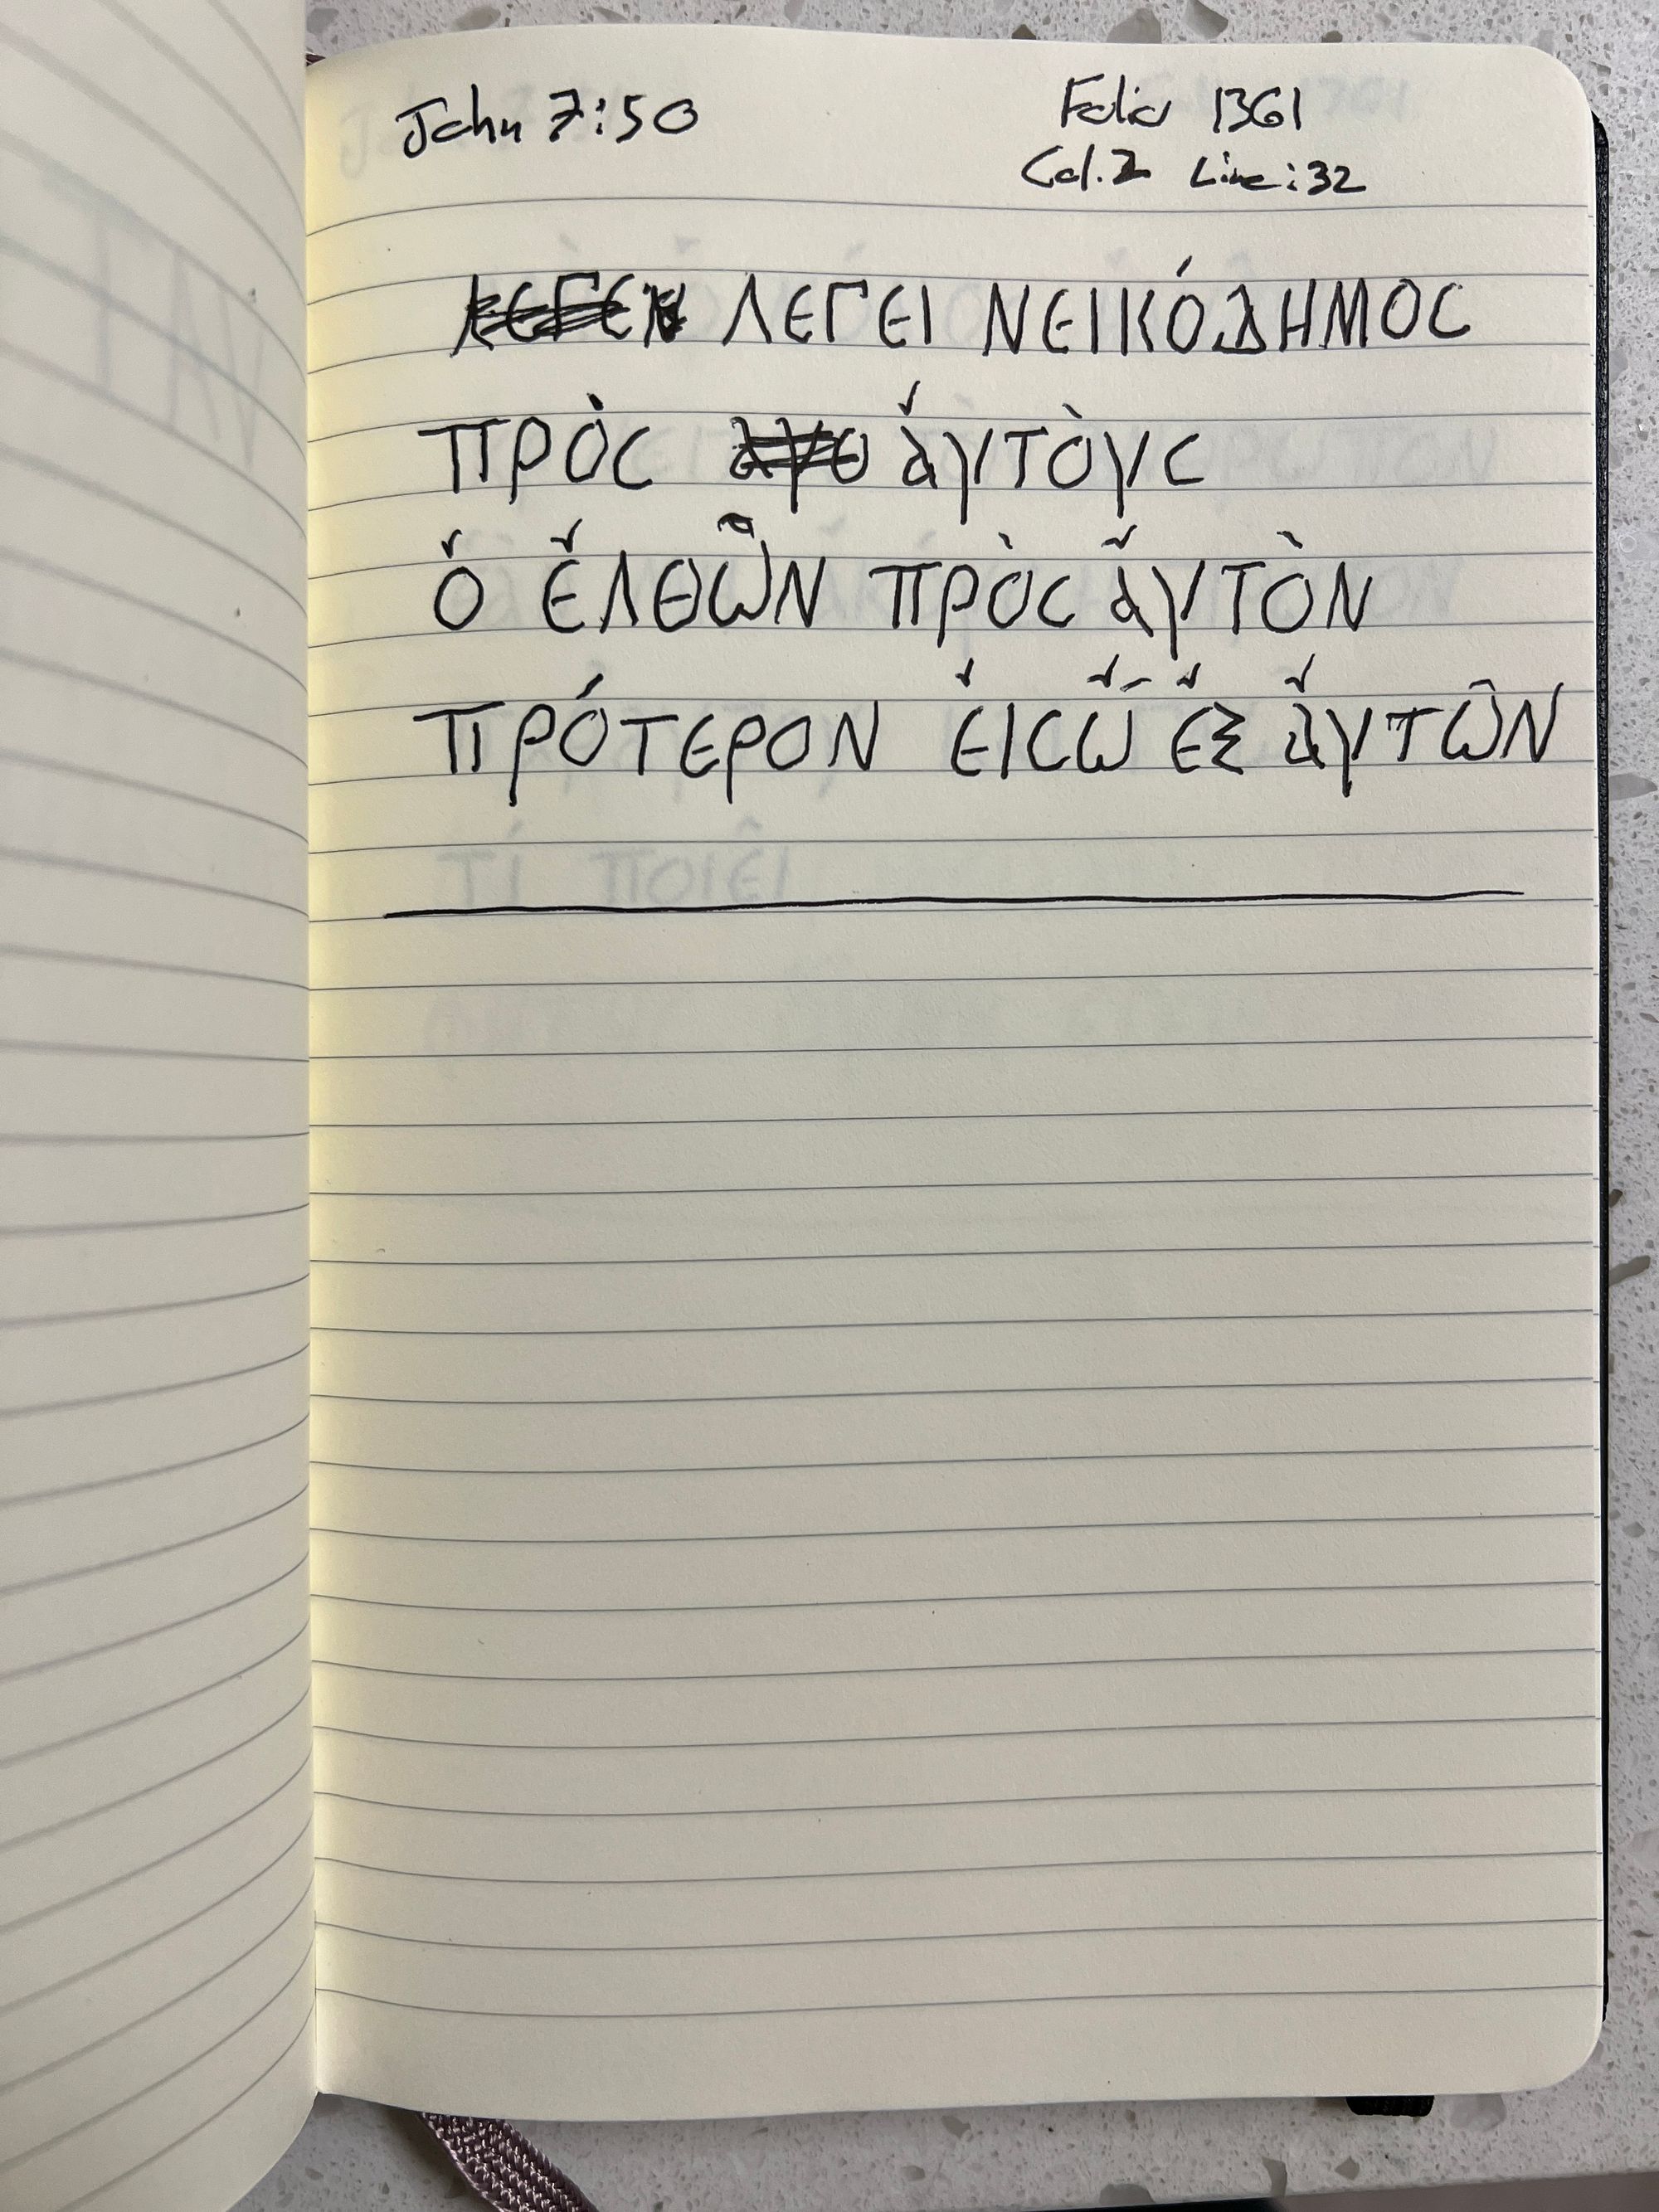 John 7:50
Folio 1361
Col. 2 Line: 32
ΛΕΓΕΙ ΝΕΙΚΌΔΗΜΟϹ
ΠΡῸϹ ἀΥΤῸΥϹ
Ὁ ἘΛΘῺΝ ΠΡῸϹ ἀΥΤῸΝ
ΠΡΌΤΕΡΟΝ ἐΙϹὮ ἐΞ ἀΥΤΩ͂Ν
ΤΊ ΠΟΙΕῖ